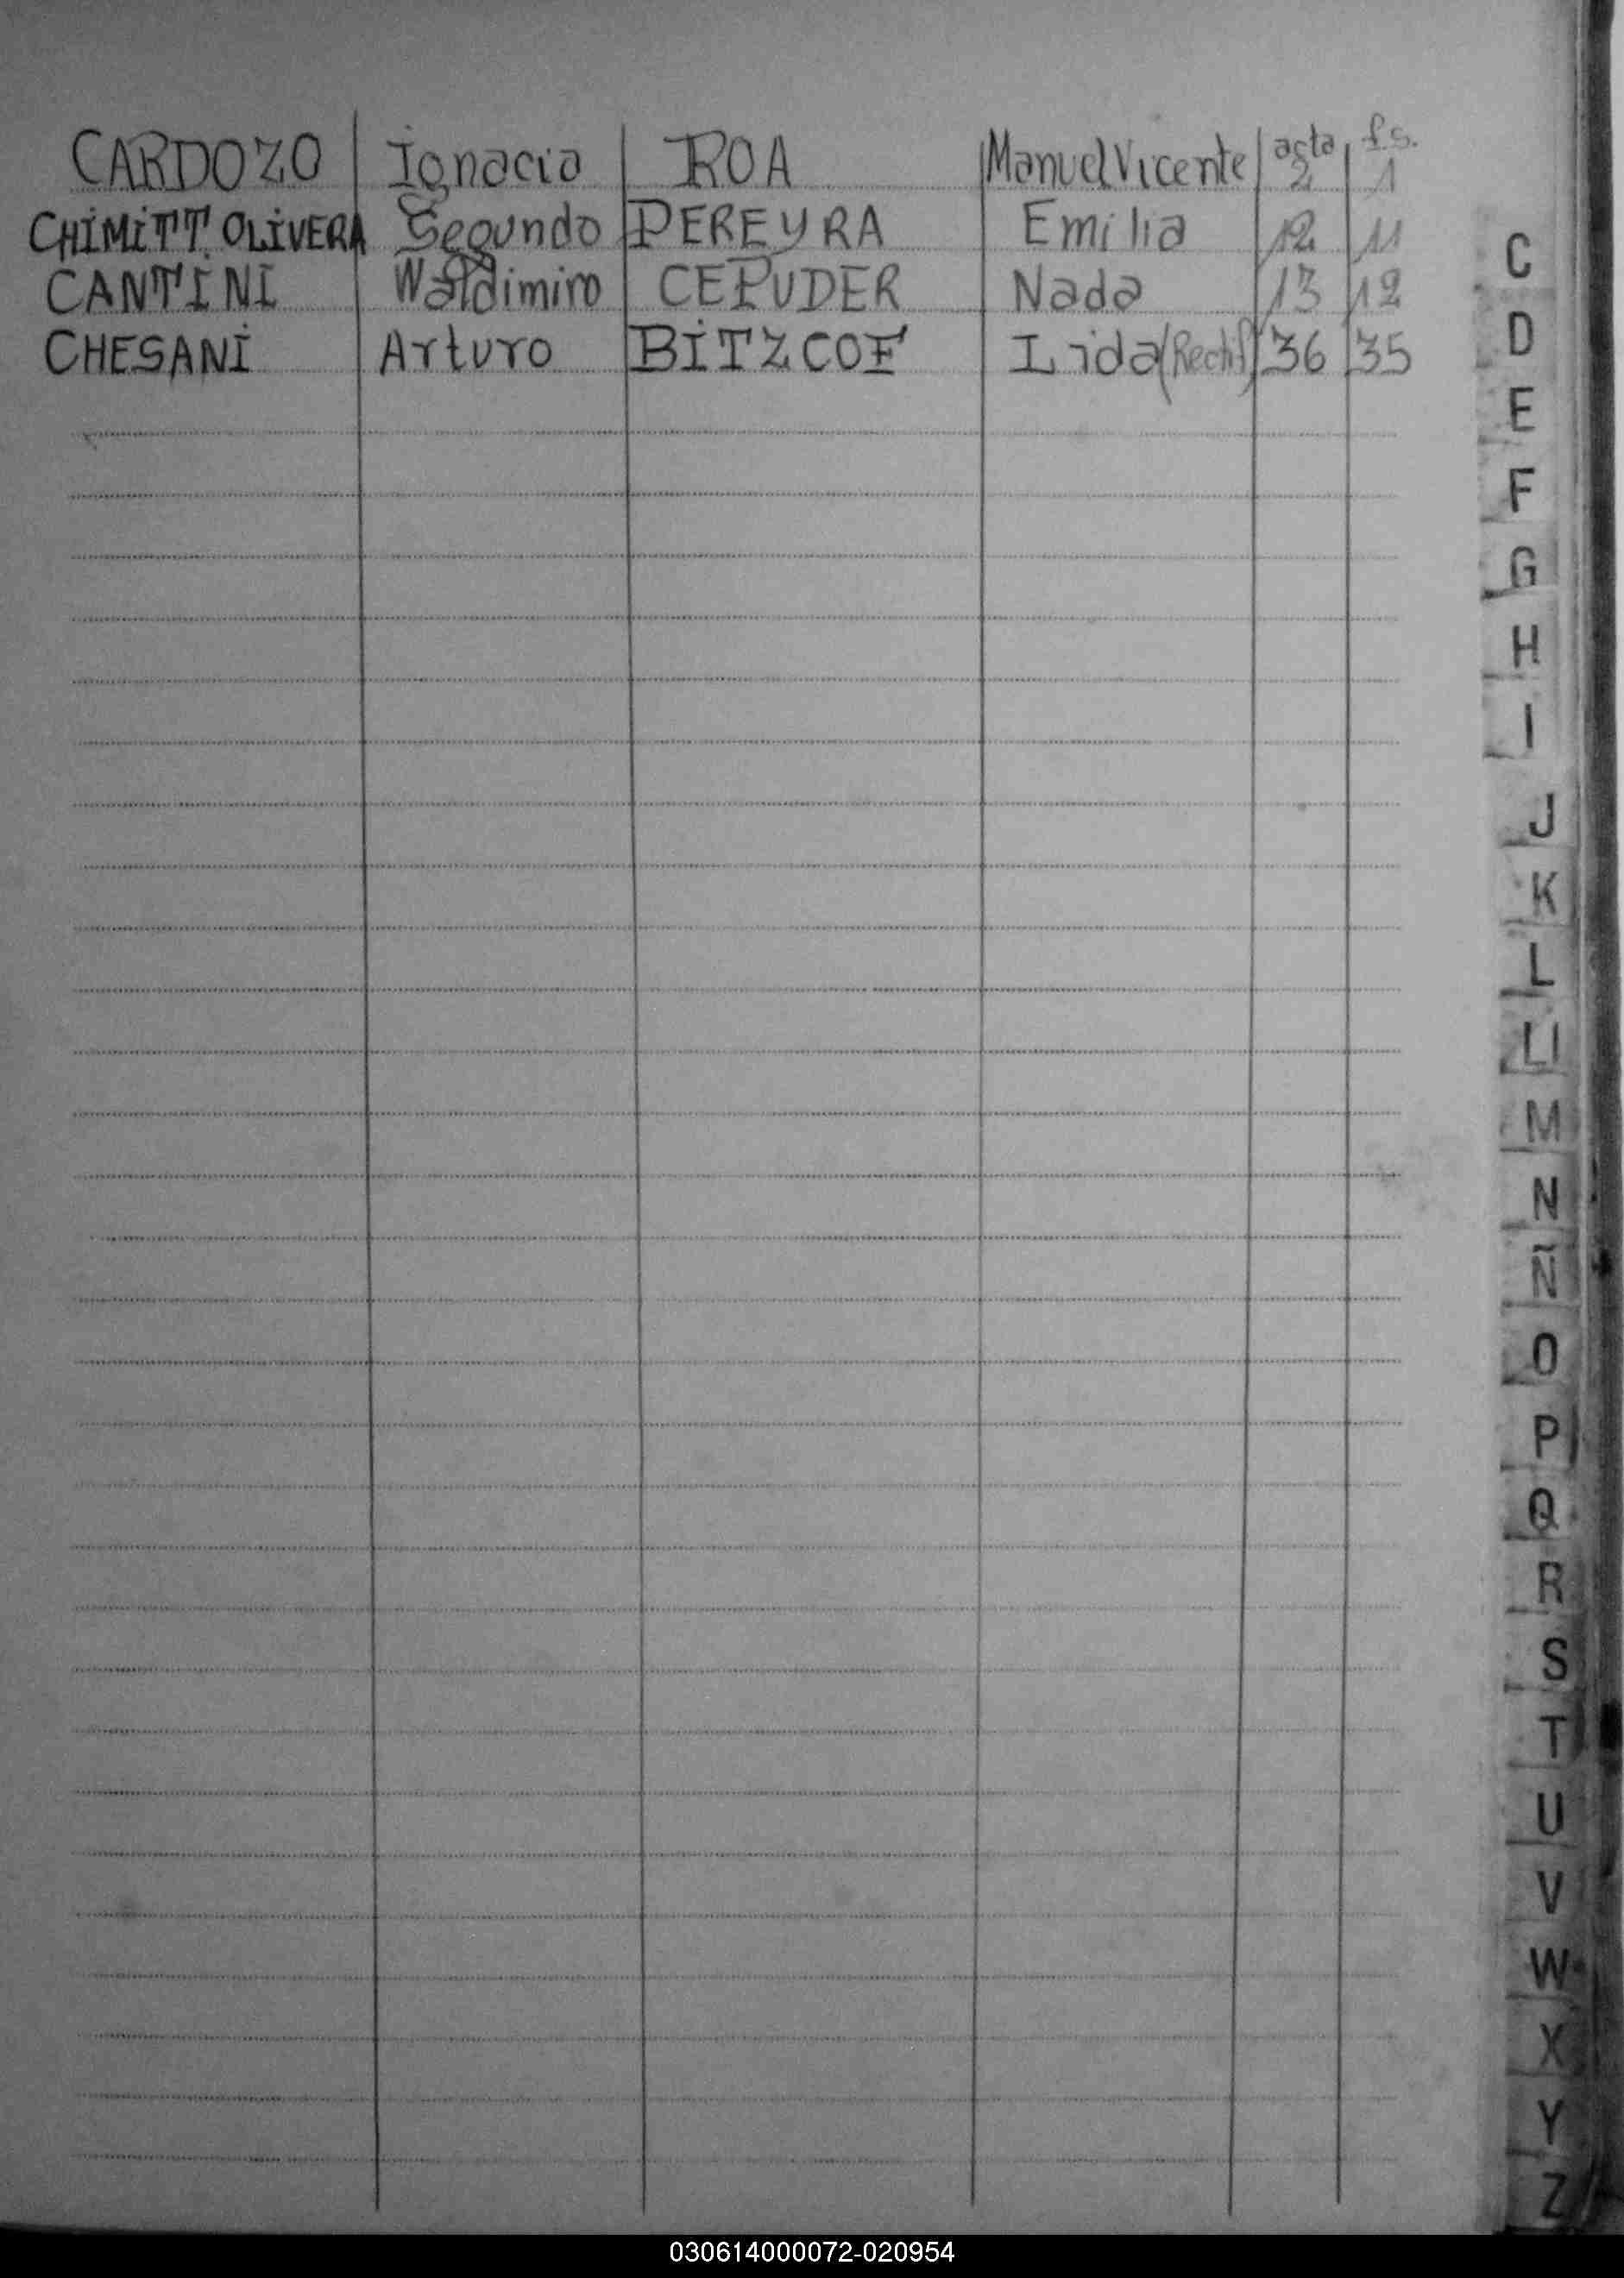 CARDOZO Ignacia ROA Manuel Vicente acta 2 fs. 1
CHIMITT OLIVERA Segundo PEREYRA Emilia 12 11
CANTINI Waldimiro CEPUDER Nada 13 12
CHESANI Arturo BITZCOF Lida (Rectif) 36 35
C
D
E
F
G
H
I
J
K
L
Ll
M
N
Ñ
O
P
Q
R
S
T
U
V
W
X
Y
Z
030614000072-020954